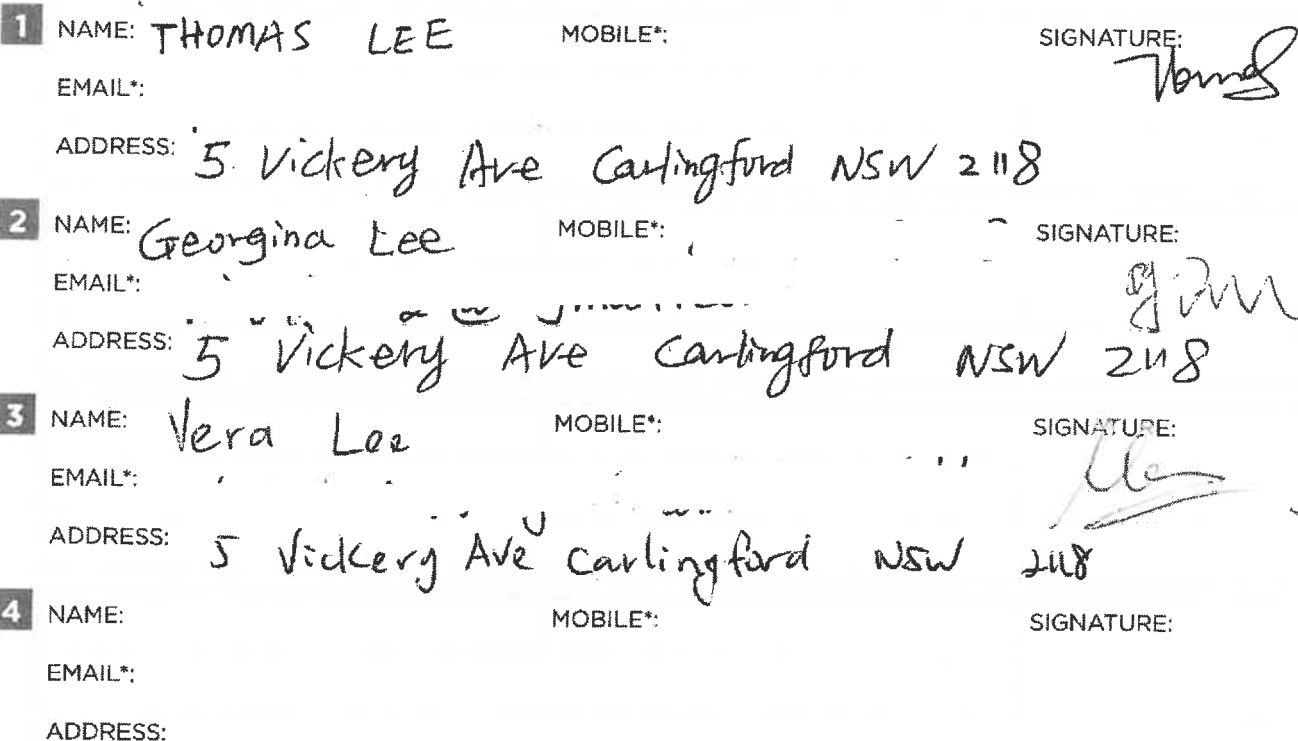 1 NAME: THOMAS LEE MOBILE*: SIGNATURE:
EMAIL*:
ADDRESS: 5 Vickery Ave Carlingford NSW 2118
2 NAME: Georgina Lee MOBILE*: SIGNATURE:
EMAIL*:
ADDRESS: 5 Vickery Ave Carlingford NSW 2118
3 NAME: Vera Lee MOBILE*: SIGNATURE:
EMAIL*:
ADDRESS: 5 Vickery Ave Carlingford NSW 2118
4 NAME: MOBILE*: SIGNATURE:
EMAIL*:
ADDRESS: